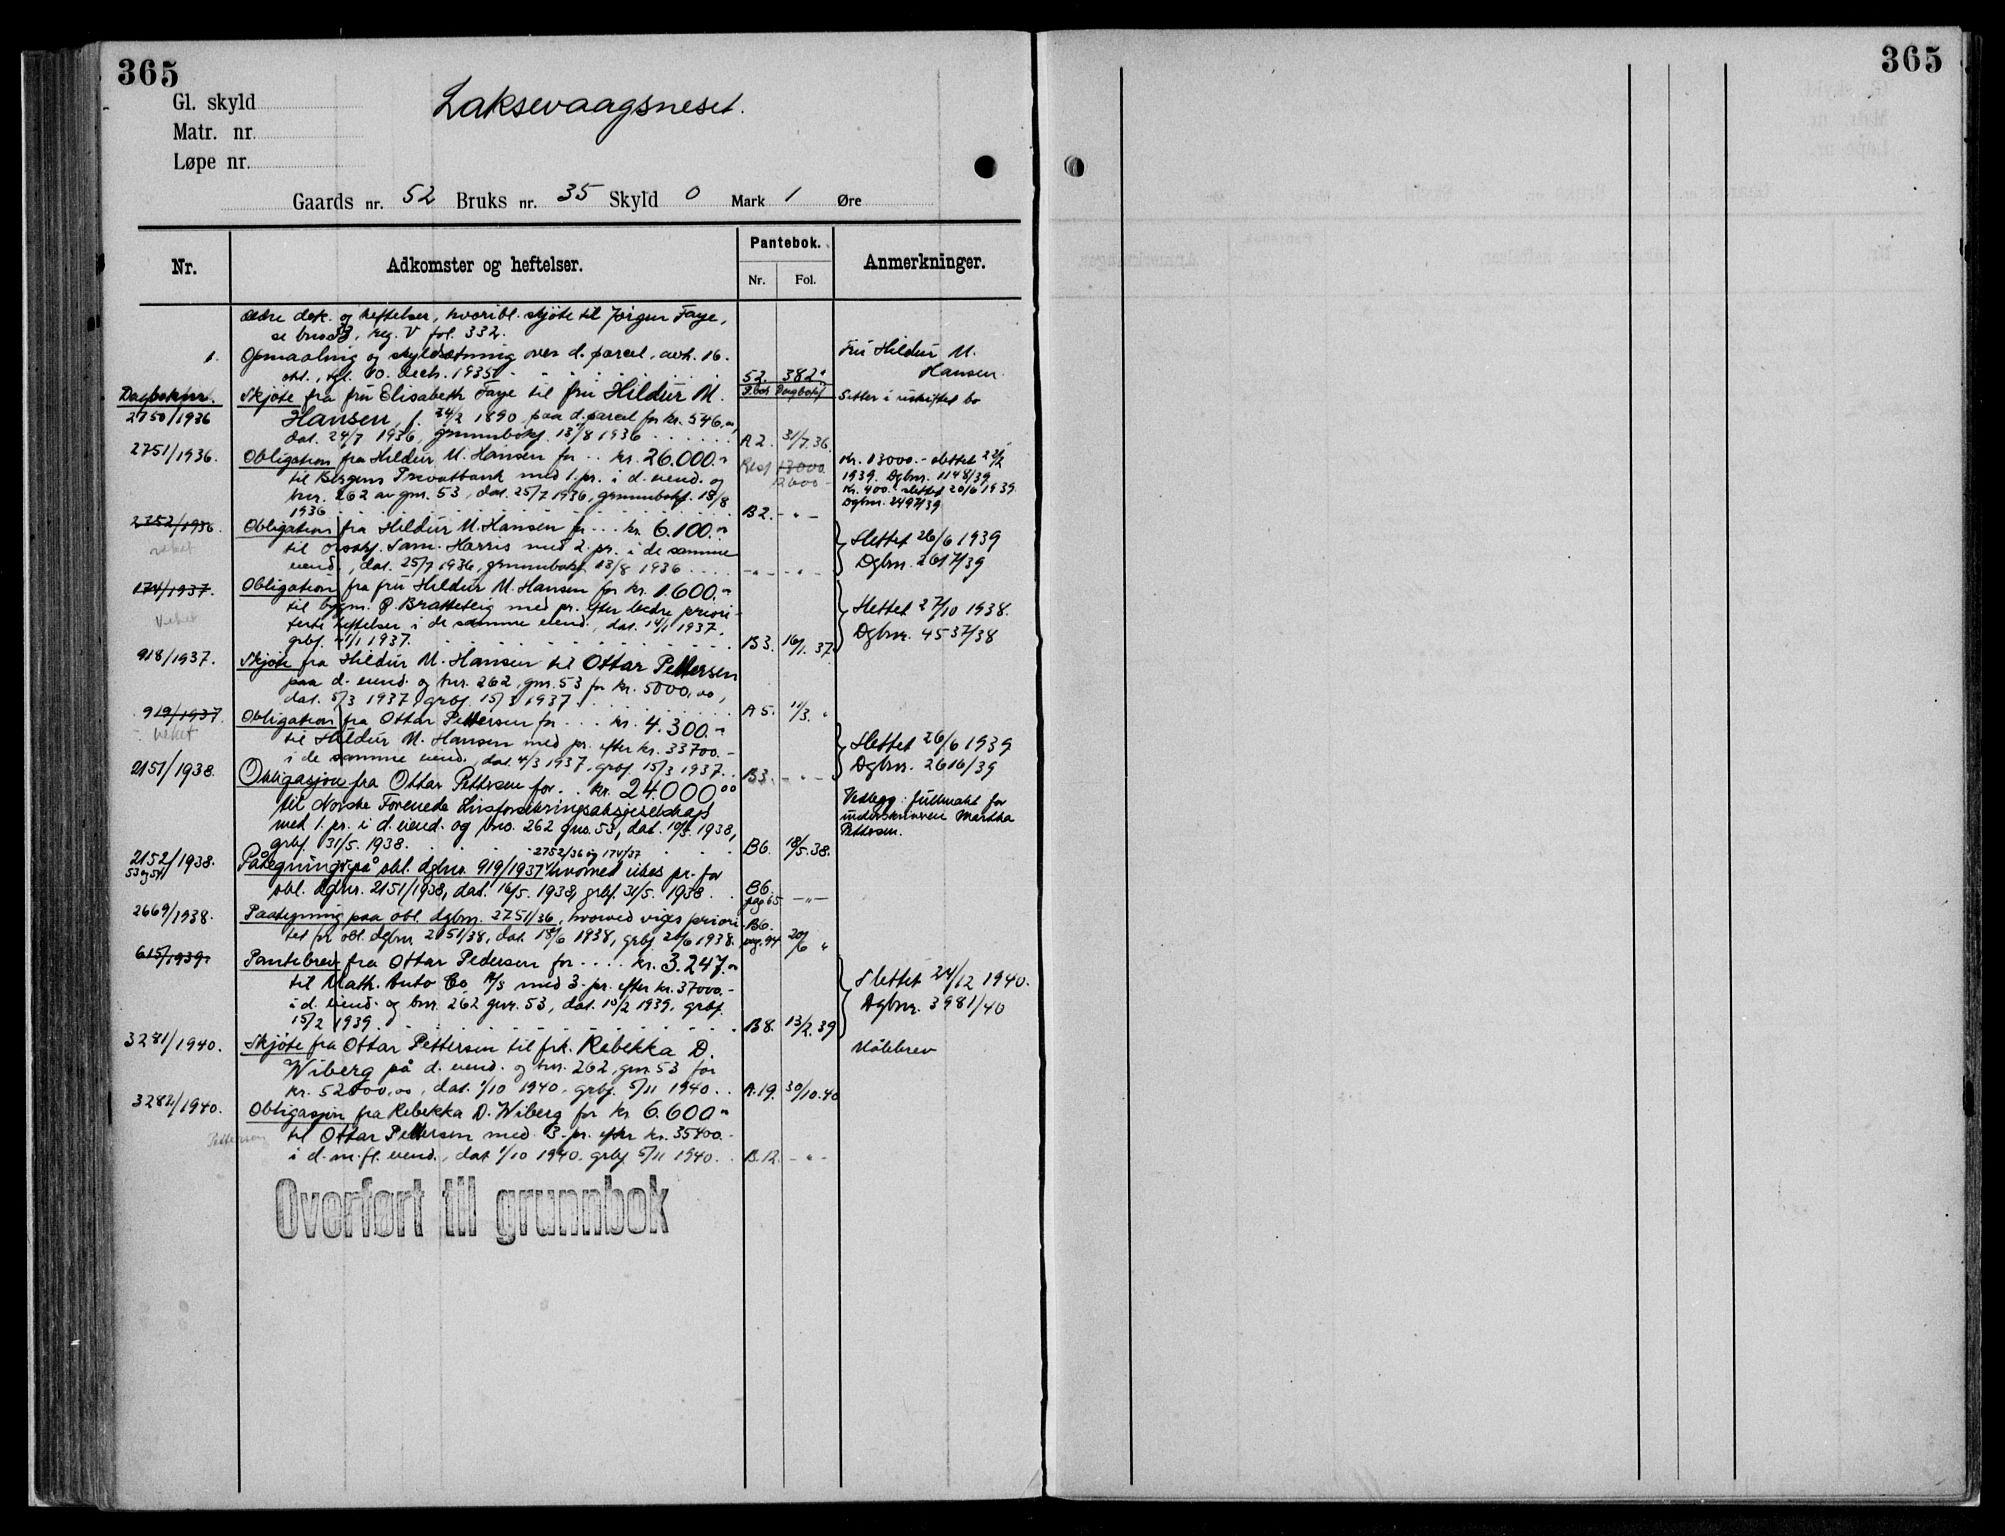 365
365
Gl. skyld
Laksevaagsneset.
Matr. nr.
Løpe nr.
Gaards nr. 52 Bruks nr. 35 Skyld 0 Mark 1 Øre
Nr. Adkomster og heftelser. Pantebok. Anmerkninger.
Nr. Fol.
ældre dok. og heftelser, hvoribl. skjøte til Jørgen Faye,
se bno 33, reg. V fol. 332.
1. Opmaaling og skyldsætning over d. parcel, avh. 16. Fru Hildur M.
okt., tgl. 10. Decb. 1935. 52. 382 Hansen.
Dagboknr. Skjøte fra fru Elisabeth Faye til fru Hildur M. P.bok Dagbokf. Sitter i uskiftet bo
2750/1936 Hansen, f. 24/2 1890, paa d. parcel for kr. 546,00,
dat. 24/7 1936, grunnbokf. 13/8 1936 A2. 31/7.36.
2751/1936. Obligation fra Hildur M. Hansen for .. kr. 26.000.- Rest 13000 kr. 13000.- slettet 28/2
til Bergens Privatbank med 1. pr. i d. eiend. og 12600.- 1939. Dgbnr. 1148/39
bnr. 262 av gnr. 53, dat. 25/7 1936, grunnbokf. 13/8 Kr. 400.- slettet 20/6 1939.
1936 B2. - " - Dgbnr. 2497/39
2752/1936. Obligation fra Hildur M. Hansen for ... kr. 6.100.- Slettet 26/6 1939
veket til orsakf. Sam. Harris med 2. pr. i de samme
eiend., dat. 25/7 1936, grunnbokf. 13/8 1936 - " - - " - Dgbnr. 2617/39
174/1937. Obligation fra fru Hildur M. Hansen for kr. 1.600.-
veket til bygm. P. Bratteteig med pr. efter bedre priori- Slettet 27/10 1938.
terte heftelser i de samme eiend., dat. 14/1 1937, Dgbnr. 4537/38
grbf. 21/1 1937. B3. 16/1. 37.
918/1937. Skjøte fra Hildur M. Hansen til Ottar Pettersen
paa d. eiend. og bnr. 262, gnr. 53 for kr. 5000,00,
dat. 5/3 1937, grbf. 15/3 1937. A5. 11/3. "
919/1937 Obligation fra Ottar Pettersen for ... kr. 4.300.-
veket til Hildur M. Hansen med pr. efter kr. 33700.- Slettet 26/6 1939
i de samme eiend., dat. 4/3 1937, grbf. 15/3 1937. B3. - " - Dgbnr. 2616/39
2151/1938. Obligasjon fra Ottar Pettersen for .. kr. 24.000 00
til Norske Forenede Livsforsikringsaksjeselskap Vedlegg: fullmakt for
med 1. pr. i d. eiend. og bno. 262 gno. 53, dat. 10/5. 1938, underskriveren Martha
grbf. 31/5. 1938. B6. 18/5.38. Pettersen.
2752/36 og 174/37
2152/1938. Påtegninger på obl. dgbno. 919/1937 hvormed vikes pr. for
53 og 54 obl. dgbnr. 2151/1938, dat. 16/5. 1938, grbf. 31/5. 1938. B6. pag 65 - " -
2669/1938. Paategning paa obl. dgbnr. 2751/36, hvorved viges priori- B6.
tet for obl. dgbnr. 2151/38, dat. 18/6 1938, grbf. 28/6 1938. pag. 94 20/6 "
615/1939. Pantebrev fra Ottar Pedersen for .... kr. 3.247.-
til Math. Auto Co. A/S med 3. pr. efter kr. 37000.- Slettet 24/12 1940.
i d. eiend. og bnr. 262 gnr. 53, dat. 10/2 1939, grbf. Dgbnr. 3981/40
15/2 1939. B8. 13/2.39
3281/1940. Skjøte fra Ottar Pettersen til frk. Rebekka D. Målebrev
Wiberg på d. eiend. og bnr. 262, gnr. 53 for
kr. 52000,00, dat. 1/10 1940, grbf. 5/11 1940. A.19. 30/10.40
3282/1940. Obligasjon fra Rebekka D. Wiberg for kr. 6.600.-
Pettersen til Ottar Pettersen med 3. pr. efter kr. 35400.-
i d. m. fl. eiend., dat. 1/10 1940, grbf. 5/11 1940. B.12. - " -
Overført til grunnbok